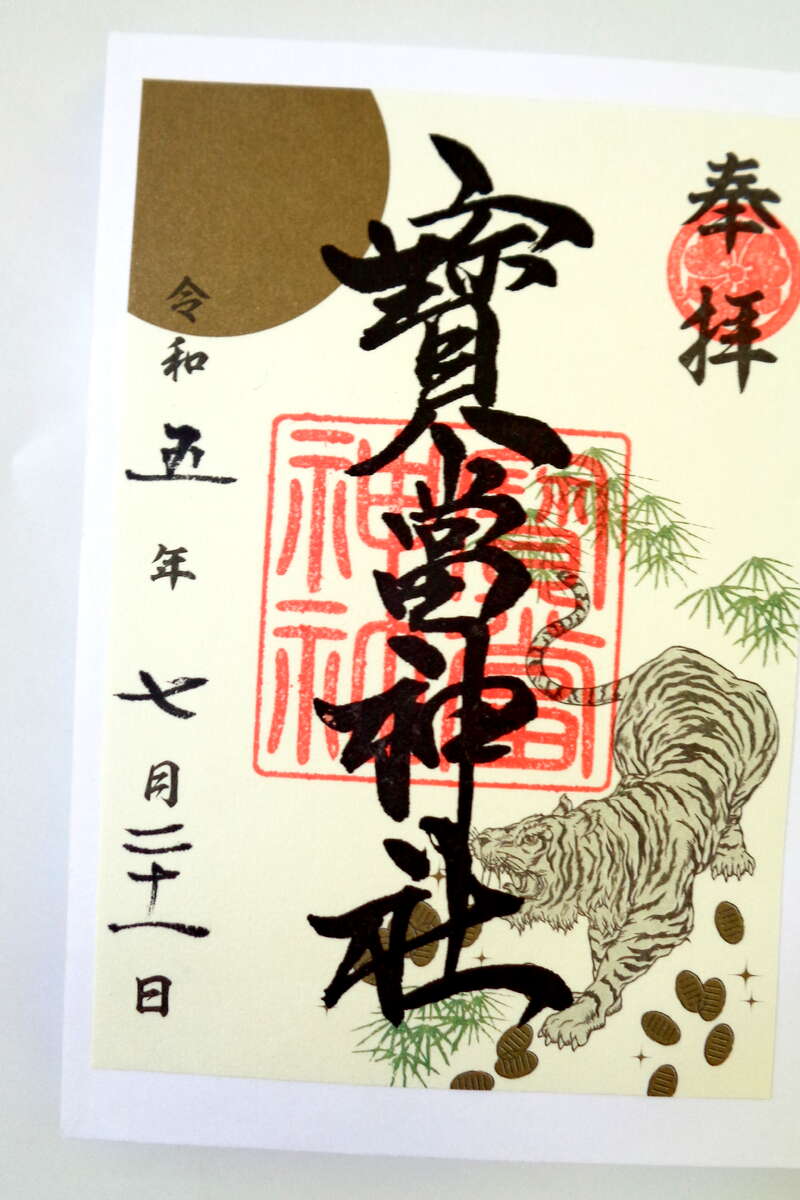 奉拝
寳當神社
寳當神社
令和五年七月二十一日